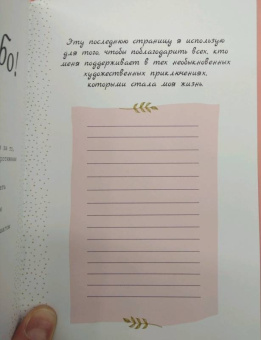 бо!
Эту последнюю страницу я использую
для того, чтобы поблагодарить всех, кто
меня поддерживает в тех необыкновенных
художественных приключениях,
которыми стала моя жизнь.